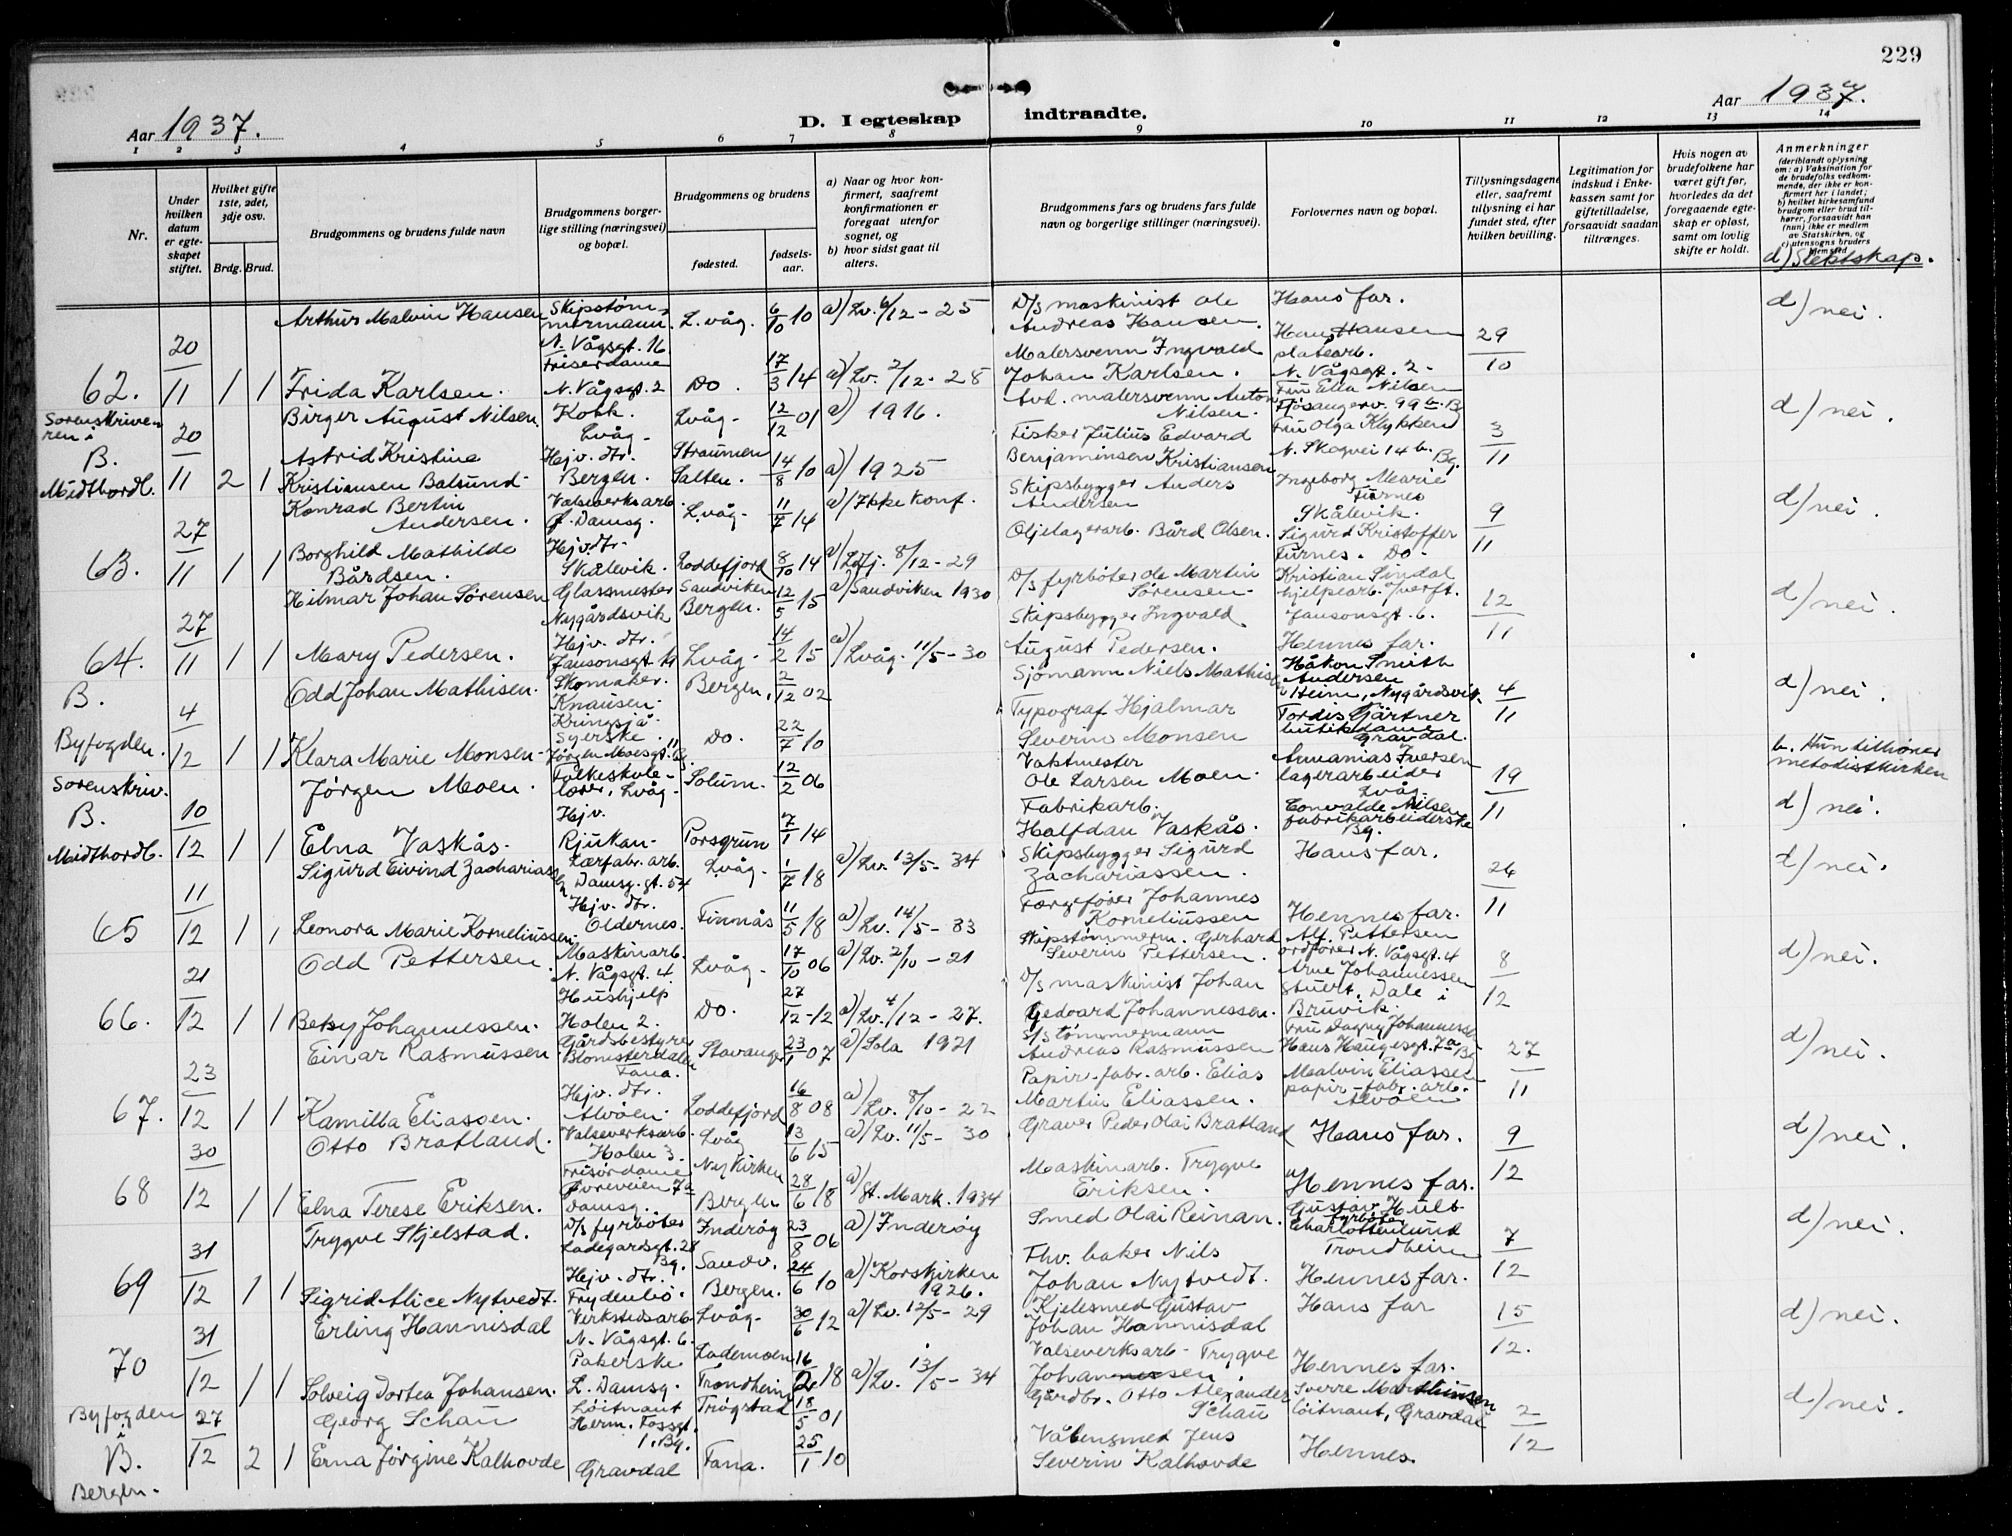 229
Aar 1937.
D. I egteskap indtraadte.
Aar 1937.
1 2 3 4 5 6 7 8 9 10 11 12 13 14
Nr.
Under hvilken datum er egteskapet stiftet.
Hvilket gifte 1ste, 2det, 3dje osv.
Brdg. Brud.
Brudgommens og brudens fulde navn
Brudgommens borgerlige stilling (næringsvei) og bopæl.
Brudgommens og brudens
fødested.
fødselsaar.
a) Naar og hvor konfirmert, saafremt konfirmationen er foregaat utenfor sognet, og
b) hvor sidst gaat til alters.
Brudgommens fars og brudens fars fulde navn og borgerlige stillinger (næringsvei).
Forlovernes navn og bopæl.
Tillysningsdagene eller, saafremt tillysning ei har fundet sted, efter hvilken bevilling.
Legitimation for indskud i Enkekassen samt for giftetilladelse, forsaavidt saadan tiltrænges.
Hvis nogen av brudefolkene har været gift før, hvorledes da det foregaaende egteskap er opløst, samt om lovlig skifte er holdt.
Anmerkninger
(deriblandt oplysning om: a) Vaksination for de brudefolks vedkommende, der ikke er konfirmert her i landet; b) hvilket kirkesamfund brudgom eller brud tilhører, forsaavidt han (hun) ikke er medlem av Statskirken, og c) utensogns bruders hjemsted
d) Slektskap.
62. 20/11 1 1
Arthur Malvin Hansen Skipstømmermann. N. Vågsgt. 16 L.våg. 6/10 10 a) Lv. 6/12 - 25 D/s maskinist Ole Andreas Hansen. Hans far. 29/10 d) nei.
Frida Karlsen. Friserdame N. Vågsgt. 2 Do. 17/3 14 a) Lv. 2/12 - 28 Malersvenn Ingvald Johan Karlsen. Hans Hansen platearb. N. Vågsgt. 2.
Sorenskriveren i B. Midthordl. 20/11 2 1
Birger August Nilsen. Kokk. Lvåg. Lvåg. 12/12 01 a) 1916. Avd. malersvenn Anton Nilsen. Fru Ella Nilsen Fjøsangerv. 99 b. B 3/11 d) nei.
Astrid Kristine Kristiansen Balsund. Hejv. dtr. Bergen. Straumen Salten. 14/8 10 a) 1925 Fisker Julius Edvard Benjaminsen Kristiansen Fru Olga Klykken N. Skogvei 14 b. Bg.
63. 27/11 1 1
Konrad Bertin Andersen. Valseverksarb. Damsg. Lvåg. 11/7 14 a) Ikke konf. Skipsbygger Anders Andersen Ingeborg Marie Furnes Skålevik. 9/11 d) nei.
Borghild Mathilde Bårdsen. Hejv. dtr. Skålevik. Loddefjord 8/10 14 a) Ldfj. 8/12 - 29 Oljelagerarb. Bård Olsen. Sigurd Kristoffer Furnes. Do.
64. 27/11 1 1
Hilmar Johan Sørensen Glassmester Nygårdsvik Sandviken Bergen. 12/5 15 a) Sandviken 1930 D/s fyrbøter Ole Martin Sørensen. Kristian Sindal hjelpearb. v/verft. Jansonsgt. 6. 12/11 d) nei.
Mary Pedersen. Hejv. dtr. Jansonsgt. 19 Lvåg. 14/2 15 a) Lvåg. 11/5 - 30 Skipsbygger Ingvald August Pedersen. Hennes far.
B. Byfogden. 4/12 1 1
Odd Johan Mathisen. Skomaker. Knausen. Kringsjå. Bergen. 2/12 02 Sjømann Niels Mathisen Håkon Smith Andersen Heim, Nygårdsvik. 4/11 d) nei.
Klara Marie Monsen. Syerske. Jørgen Moesgt. 11 Bg. Do. 22/7 10 Typograf Hjalmar Severin Monsen Tordis Gärtner butikdame Gravdal. b. Hun tilhører metodistkirken
Sorenskriv. B. Midthordl. 10/12 1 1
Jørgen Moen. Folkeskolelærer, Lvåg. Solum. 12/2 06 Vaktmester Ole Larsen Moen. Annanias Iversen lagerarbeider Lvåg 19/11 d) nei.
Elna Vaskås. Hjv. Rjukan. Porsgrun 7/1 14 Fabrikarb. Halfdan Vaskås. Convalde Nilsen fabrikarbeiderske Bg.
65 11/12 1 1
Sigurd Eivind Zachariassen Lærfabr. arb. Damsg. gt. 54 Lvåg. 1/7 18 a) Lv. 13/5 - 34 Skipsbygger Sigurd Zachariassen. Hans far. 26/11 d) nei.
Leonora Marie Korneliussen. Hejv. dtr. Oldernes. Finnås 11/5 18 a) Lv. 14/5 - 33 Færgefører Johannes Korneliussen Hennes far.
66. 21/12 1 1
Odd Pettersen. Maskinarb. N. Vågsgt. 4 Lvåg. 17/10 06 a) Lv. 2/10 - 21 Skipstømmerm. Gerhard Severin Pettersen. Alf. Pettersen ordfører N. Vågsgt. 4 8/12 d) nei.
Betsy Johannessen. Hushjelp Holen 2. Do. 27/12 - 12 a) Lv. 4/12 - 27. D/s maskinist Johan Gedvard Johannessen. Arne Johannessen stuert. Dale i Bruvik.
67. 23/12 1 1
Einar Rasmussen Gårdsbestyrer Blomsterdalen Fana. Stavanger 23/1 07 a) Sola 1921 S/s tømmermann Andreas Rasmussen Fru Dagny Johannessen Hans Haugesgt. 7a Bg 27/11 d) nei.
Kamilla Eliassen. Hejv. dtr. Alvøen. Loddefjord 16/8 08 a) Lv. 8/10 - 22 Papir. fabr. arb. Elias Martin Eliassen. Malvin Eliassen papir-fabr. arb. Alvøen
68 30/12 1 1
Otto Bratland. Valseverksarb. Holen 3. Lvåg 13/6 15 a) Lv. 11/5 - 30 Graver Peder Olai Bratland Hans far. 9/12 d) nei.
Elna Terese Eriksen. Frisørdame Damsg. Nykirken Bergen 28/6 18 a) St. Mark. 1934 Maskinarb. Trygve Eriksen. Hennes far.
69 31/12 1 1
Trygve Skjelstad. D/s fyrbøter Ladegårdsgt. 28 Bg. Inderøy 23/8 06 a) Inderøy Smed Olai Reinan. Gustav Hult fyrbøter Charlottenlund Trondheim 7/12 d) nei.
Sigrid Alice Nytvedt. Hejv. dtr. Frydenbø. Sandv. Bergen. 24/6 10 a) Korskirken 1926. Fhv. baker Nils Johan Nytvedt. Hennes far.
70 31/12 1 1
Erling Hannisdal Verkstedsarb. N. Vågsgt. 6. Lvåg. 30/6 12 a) Lv. 12/5 - 29 Kjelesmed Gustav Johan Hannisdal Hans far 15/12. d) nei.
Solveig Dortea Johansen. Pakerske L. Damsg. Lademoen Trondheim 16/2 18 a) Lv. 13/5 - 34 Valseverksarb. Trygve Johannessen. Hennes far.
Byfogden i B. Bergen. 27/12 2 1
Georg Schau Løitnant Herm. Fossgt. 1. Bg. Trøgstad 18/5 01 Gårdbr. Otto Alexander Schau Sverre Marthinsen løitnant, Gravdal 2/12 d) nei.
Erna Jørgine Kalhovde Gravdal Fana. 25/1 10 Våbensmed Jens Severin Kalhovde Hennes.